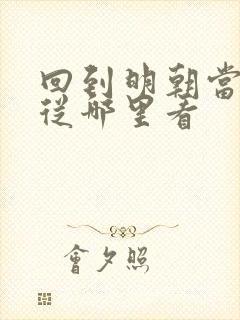 回到明朝當
從哪里看
會夕照